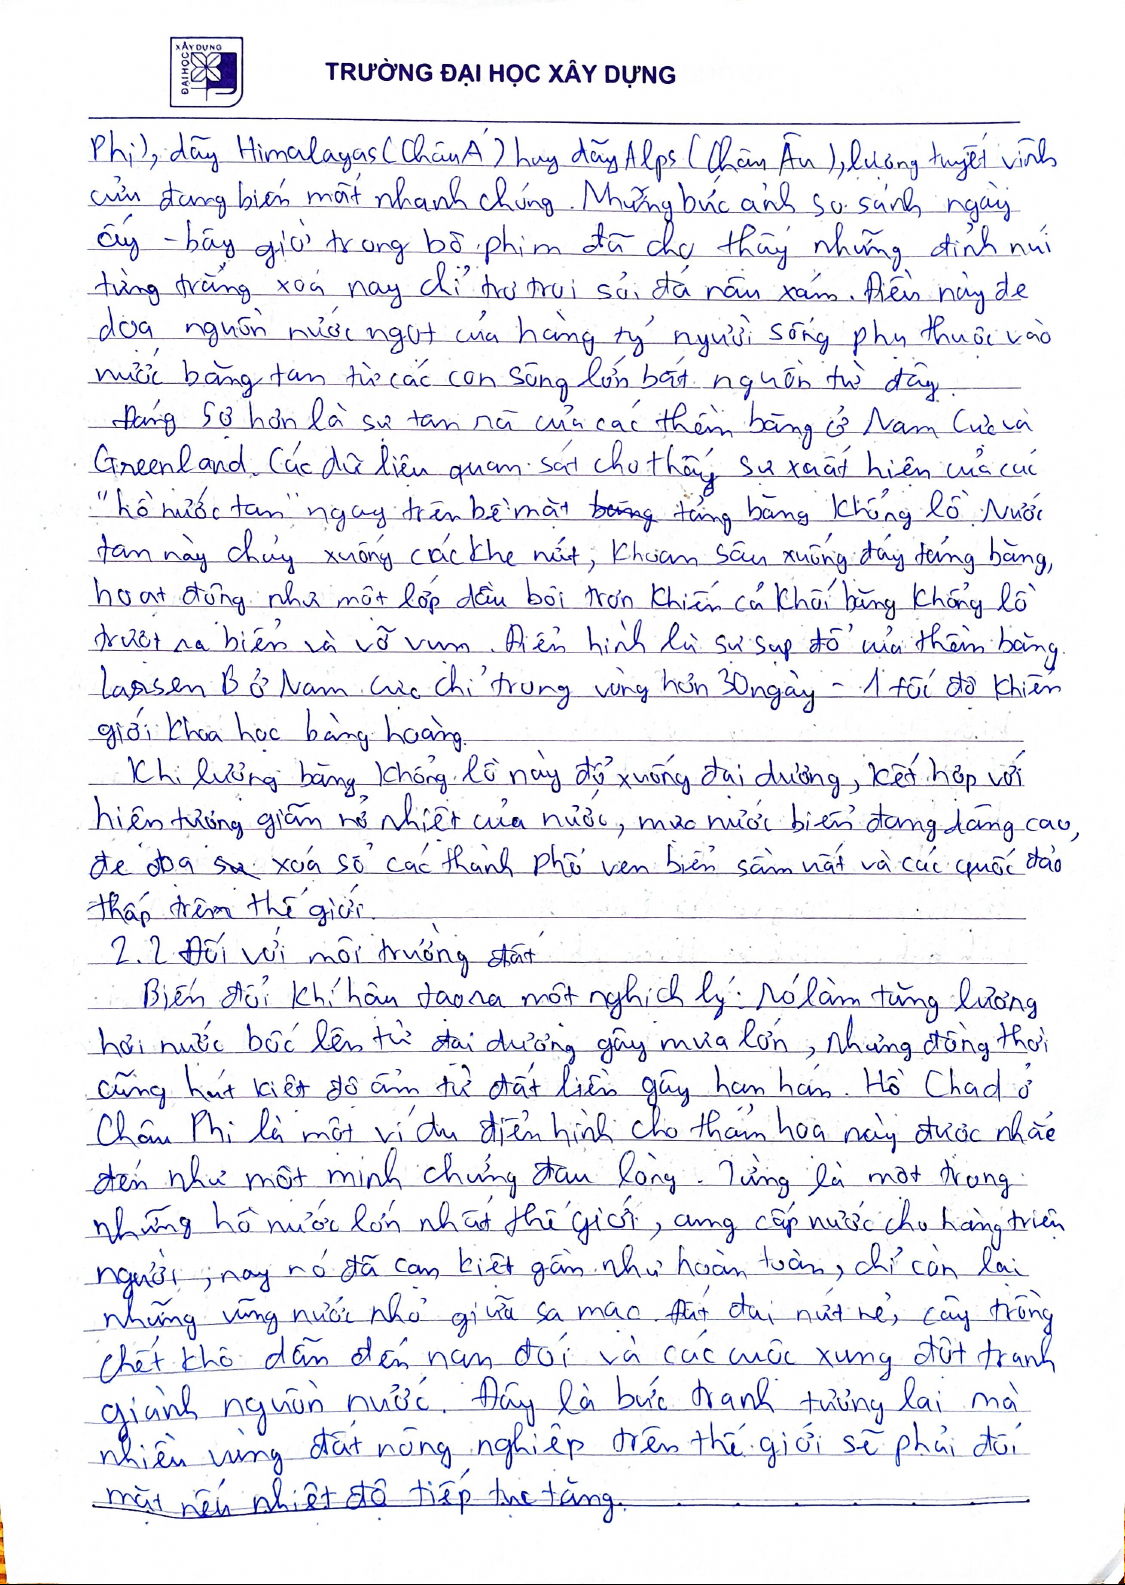 XÂY DỰNG
ĐẠI HỌC
TRƯỜNG ĐẠI HỌC XÂY DỰNG
Phi), dãy Himalayas (Châu Á) hay dãy Alps (Châu Âu), lượng tuyết vĩnh
cửu đang biến mất nhanh chóng. Những bức ảnh so sánh ngày
ấy - bây giờ trong bộ phim đã cho thấy những đỉnh núi
từng trắng xoá nay chỉ trơ trụi sỏi đá nâu xám. Điều này đe
doạ nguồn nước ngọt của hàng tỷ người sống phụ thuộc vào
nước băng tan từ các con sông lớn bắt nguồn từ đây.
Đáng sợ hơn là sự tan rã của các thềm băng ở Nam Cực và
Greenland. Các dữ liệu quan sát cho thấy sự xuất hiện của các
"hồ nước tan" ngay trên bề mặt băng tảng băng khổng lồ. Nước
tan này chảy xuống các khe nứt, khoan sâu xuống đáy tảng băng,
hoạt động như một lớp dầu bôi trơn khiến cả khối băng khổng lồ
trượt ra biển và vỡ vụn. Điển hình là sự sụp đổ của thềm băng
Larsen B ở Nam cực chỉ trong vòng hơn 30 ngày - 1 tốc độ khiến
giới khoa học bàng hoàng.
Khi lượng băng khổng lồ này đổ xuống đại dương, kết hợp với
hiện tượng giãn nở nhiệt của nước, mực nước biển đang dâng cao,
đe doạ sự xoá sổ các thành phố ven biển sầm uất và các quốc đảo
thấp trêm thế giới.
2.2 Đối với môi trường đất
Biến đổi khí hậu tạo ra một nghịch lý: Nó làm tăng lượng
hơi nước bốc lên từ đại dương gây mưa lớn, nhưng đồng thời
cũng hút kiệt độ ẩm từ đất liền gây hạn hán. Hồ Chad ở
Châu Phi là một ví dụ điển hình cho thảm hoạ này được nhắc
đến như một minh chứng đau lòng. Từng là một trong
những hồ nước lớn nhất thế giới, cung cấp nước cho hàng triệu
người, nay nó đã cạn kiệt gần như hoàn toàn, chỉ còn lại
những vũng nước nhỏ giữa sa mạc. Đất đai nứt nẻ, cây trồng
chết khô dẫn đến nạn đói và các cuộc xung đột tranh
giành nguồn nước. Đây là bức tranh tương lai mà
nhiều vùng đất nông nghiệp trên thế giới sẽ phải đối
mặt nếu nhiệt độ tiếp tục tăng.